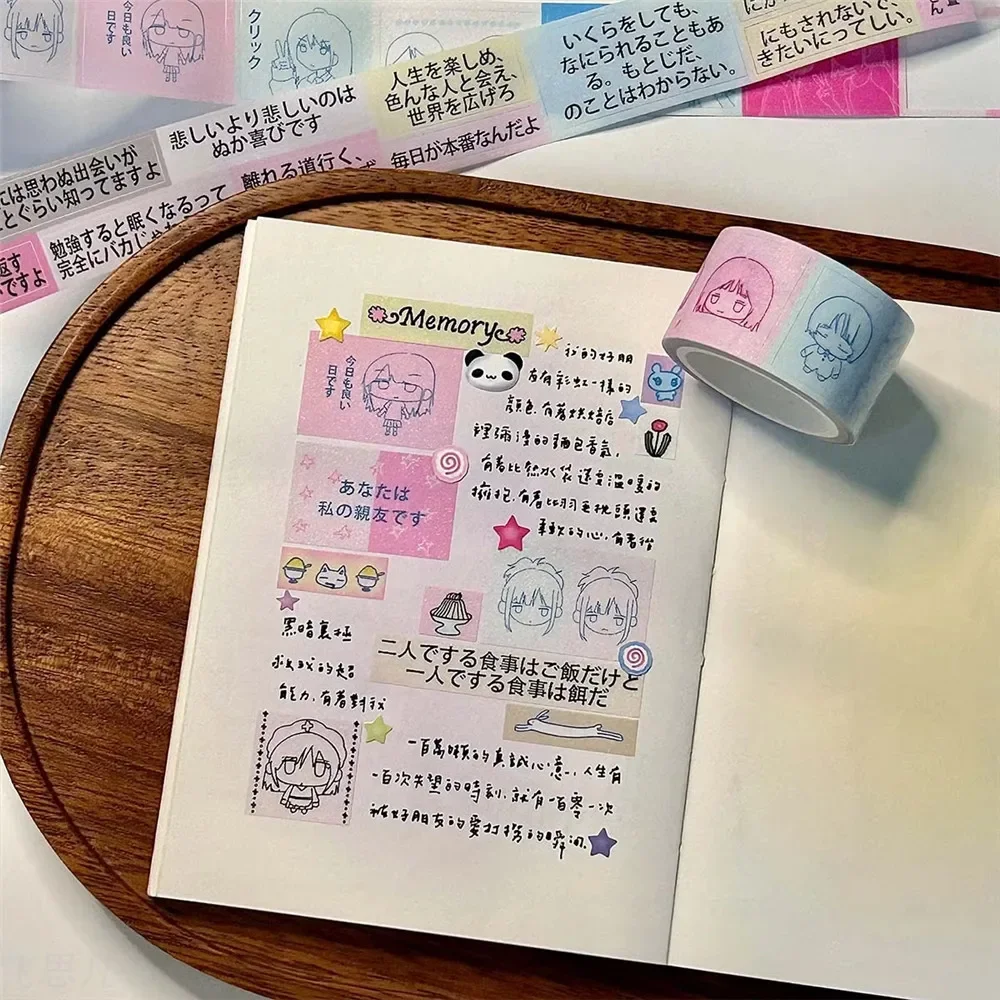 今日も良い
日です
クリック
人生を楽しめ、
色んな人と会え、
世界を広げろ
いくらをしても、
なにられることもあ
る。もとじだ、
のことはわからない。
にもされないで、
きたいにってしい。
悲しいより悲しいのは
ぬか喜びです
毎日が本番なんだよ
には思わぬ出会いが
とぐらい知ってますよ
離れる道行く、
勉強すると眠くなるって
完全にバカじゃ
返す
ですよ
Memory
今日も良い
日です
あなたは
私の親友です
我的好朋
友有彩虹一樣的
顏色.有著烘焙店
裡彌漫的麵包香氣,
有著比熱水袋還要溫暖的
擁抱.有著比羽毛枕頭還要
柔軟的心.有著從
黑暗裏拯
救我的超
能力.有著對我
二人でする食事はご飯だけど
一人でする食事は餌だ
一百萬噸的真誠心意.人生有
一百次失望的時刻.就有一百零一次
被好朋友的愛打撈的瞬間.